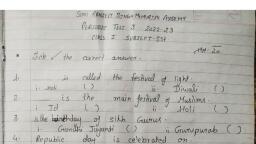 Periodic Test 3 2022-23
Class I Subject-SSt
MM 20
* Tick ✓ the correct answer.
1. is called the festival of light.
i. ( ) ii Diwali ( )
2. is the main festival of Muslims.
i Id ( ) ii Holi ( )
3. is the birthday of Sikh Gurus.
i Gandhi Jayanti ( ) ii Gurupurab ( )
4. Republic day is celebrated on